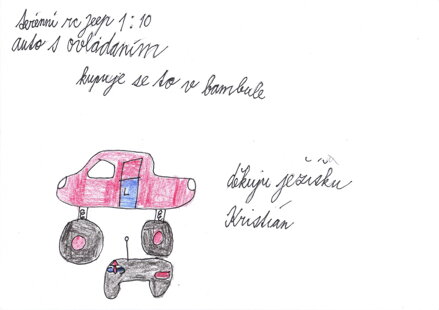 terénní rc jeep 1:10
auto s ovládaním
kupuje se to v bambule
děkuju ježíšku
Kristián